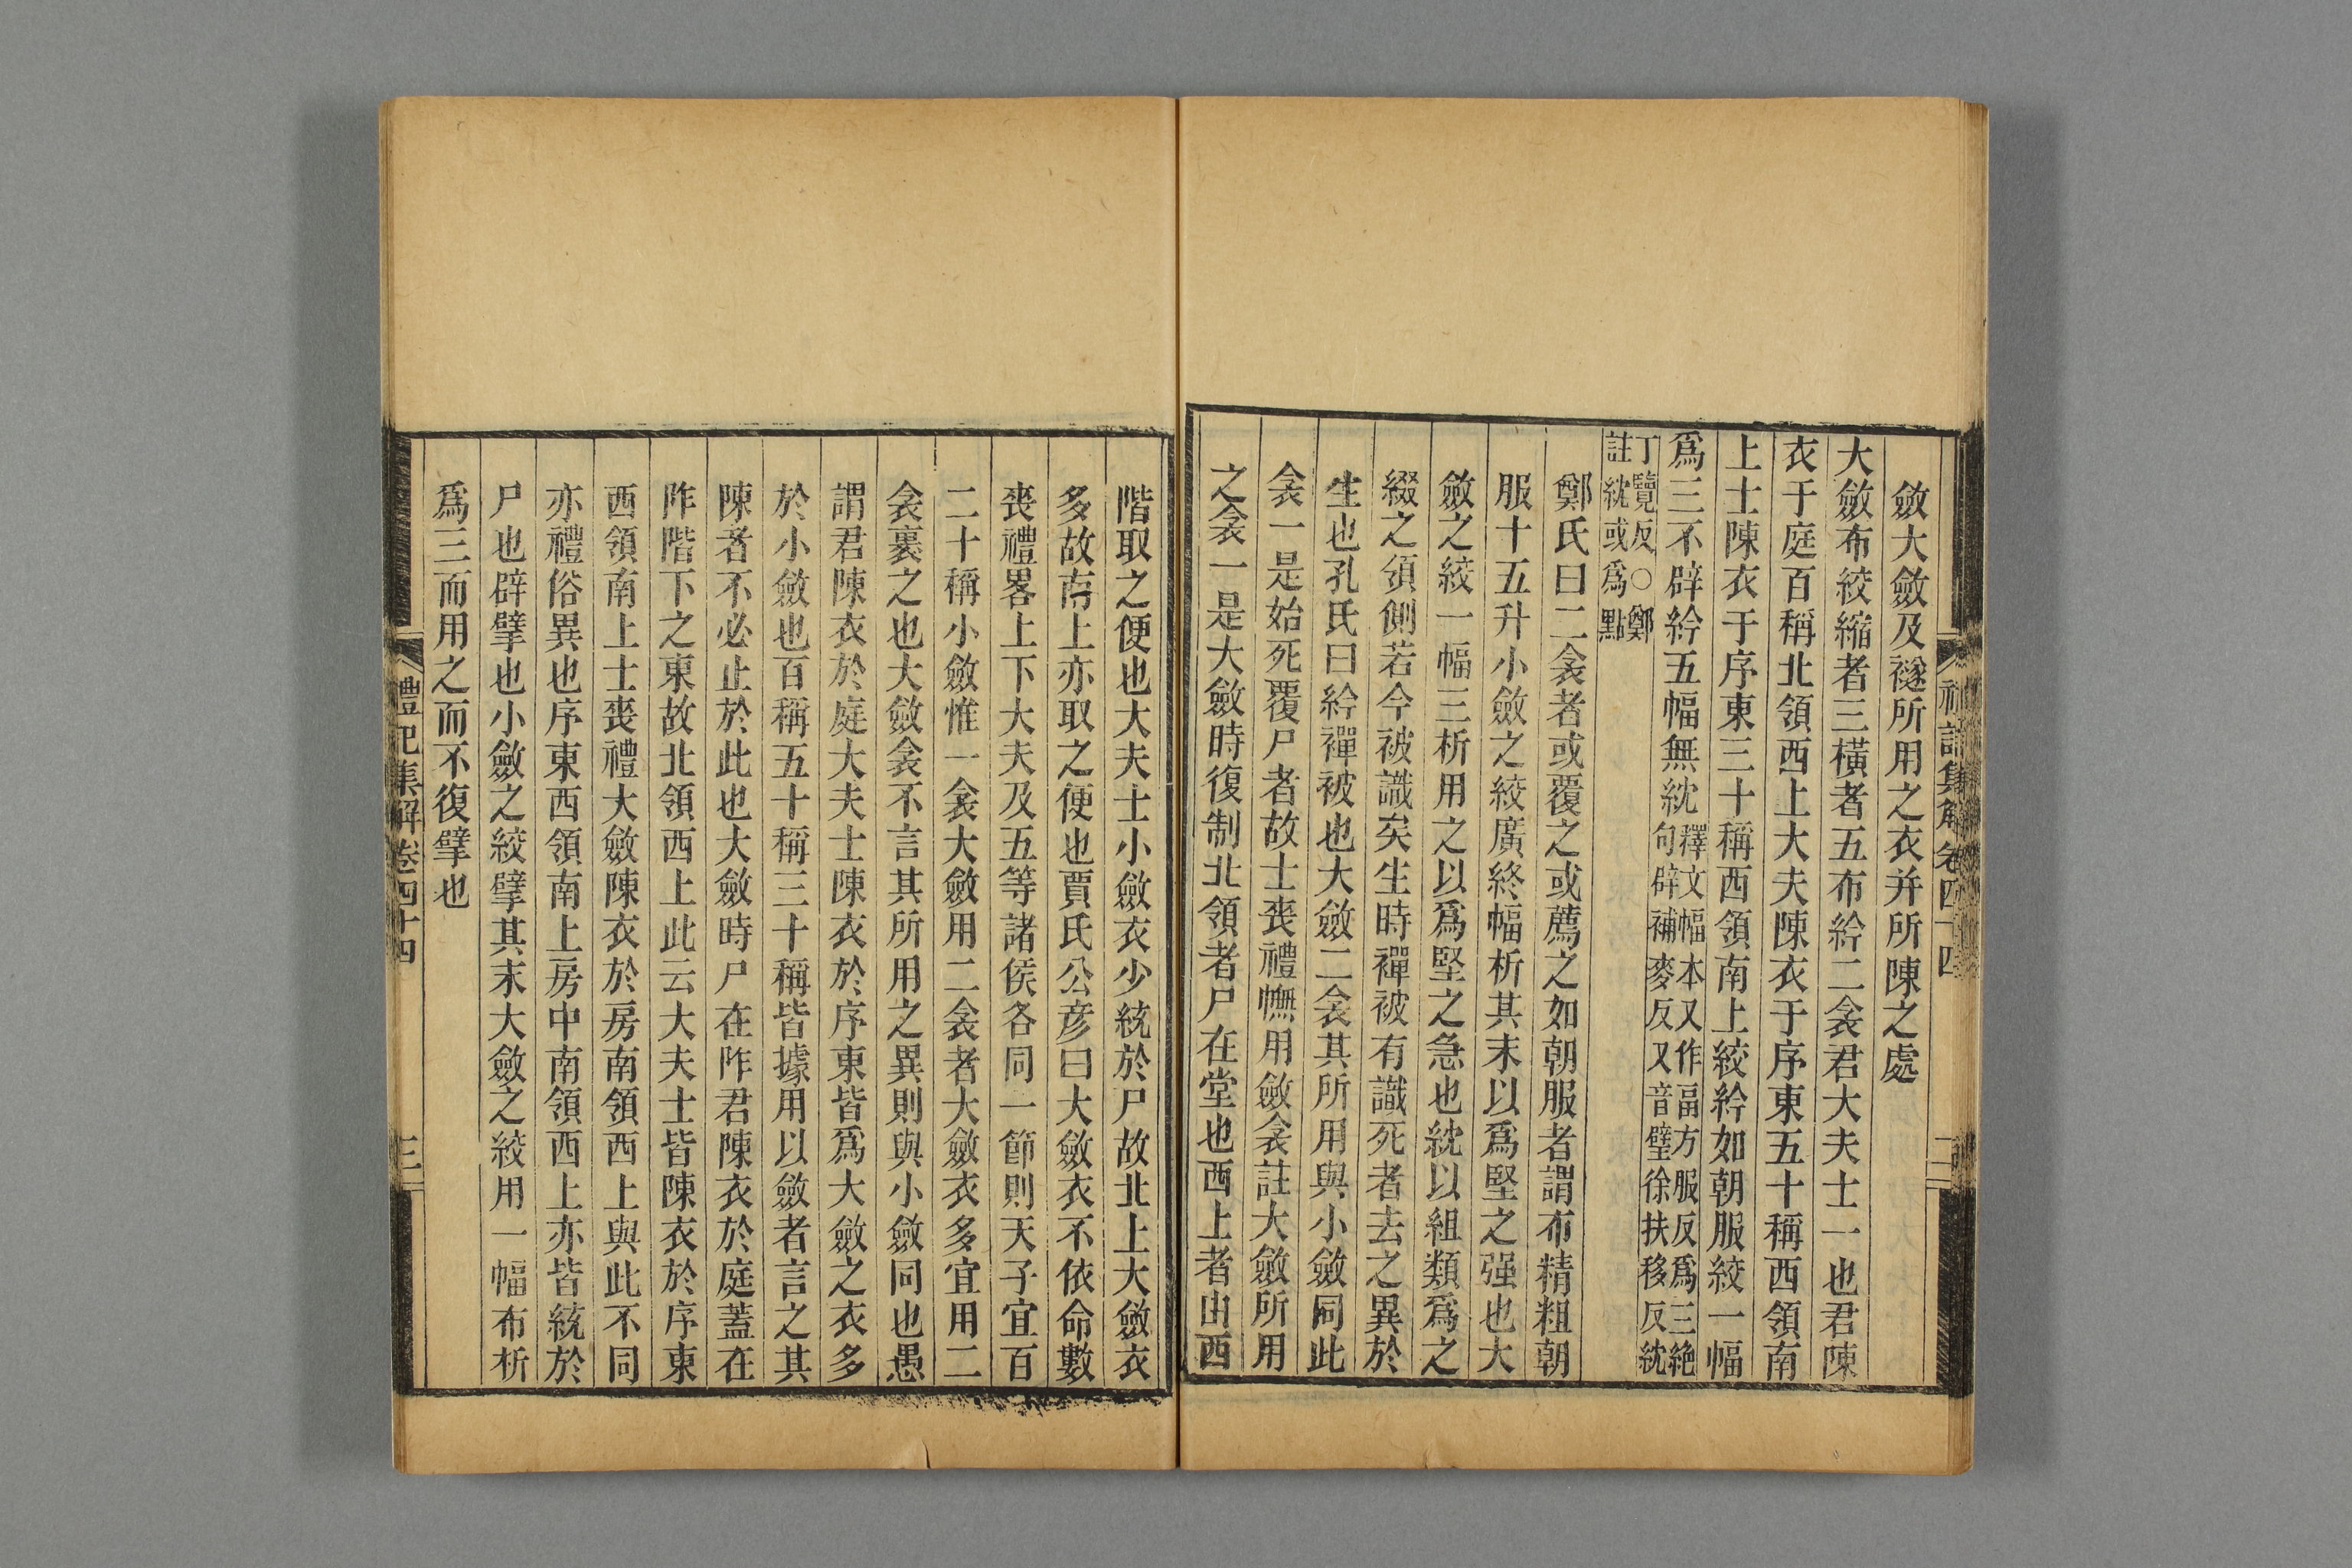 斂大斂及襚所用之衣并所陳之處
大斂布絞縮者三橫者五布紟二衾君大夫士一也君陳
衣于庭百稱北領西上大夫陳衣于序東五十稱西領南
上士陳衣于序東三十稱西領南上絞紟如朝服絞一幅
爲三不辟紟五幅無紞釋文幅本又作畐方服反爲三絶
句辟補麥反又音璧徐扶移反紞
丁覽反○鄭
註紞或爲點
鄭氏曰二衾者或覆之或薦之如朝服者謂布精粗朝
服十五升小斂之絞廣終幅析其末以爲堅之强也大
斂之絞一幅三析用之以爲堅之急也紞以組類爲之
綴之領側若今被識矣生時襌被有識死者去之異於
生也孔氏曰紟襌被也大斂二衾其所用與小斂同此
衾一是始死覆尸者故士喪禮幠用斂衾註大斂所用
之衾一是大斂時復制北領者尸在堂也西上者由西
階取之便也大夫士小斂衣少統於尸故北上大斂衣
多故南上亦取之便也賈氏公彦曰大斂衣不依命數
喪禮畧上下大夫及五等諸侯各同一節則天子宜百
二十稱小斂惟一衾大斂用二衾者大斂衣多宜用二
衾裹之也大斂衾不言其所用之異則與小斂同也愚
謂君陳衣於庭大夫士陳衣於序東皆爲大斂之衣多
於小斂也百稱五十稱三十稱皆據用以斂者言之其
陳者不必止於此也大斂時尸在阼君陳衣於庭蓋在
阼階下之東故北領西上此云大夫士皆陳衣於序東
西領南上士喪禮大斂陳衣於房南領西上與此不同
亦禮俗異也序東西領南上房中南領西上亦皆統於
尸也辟擘也小斂之絞擘其末大斂之絞用一幅布析
爲三而用之而不復擘也
禮記集解卷四十四
三